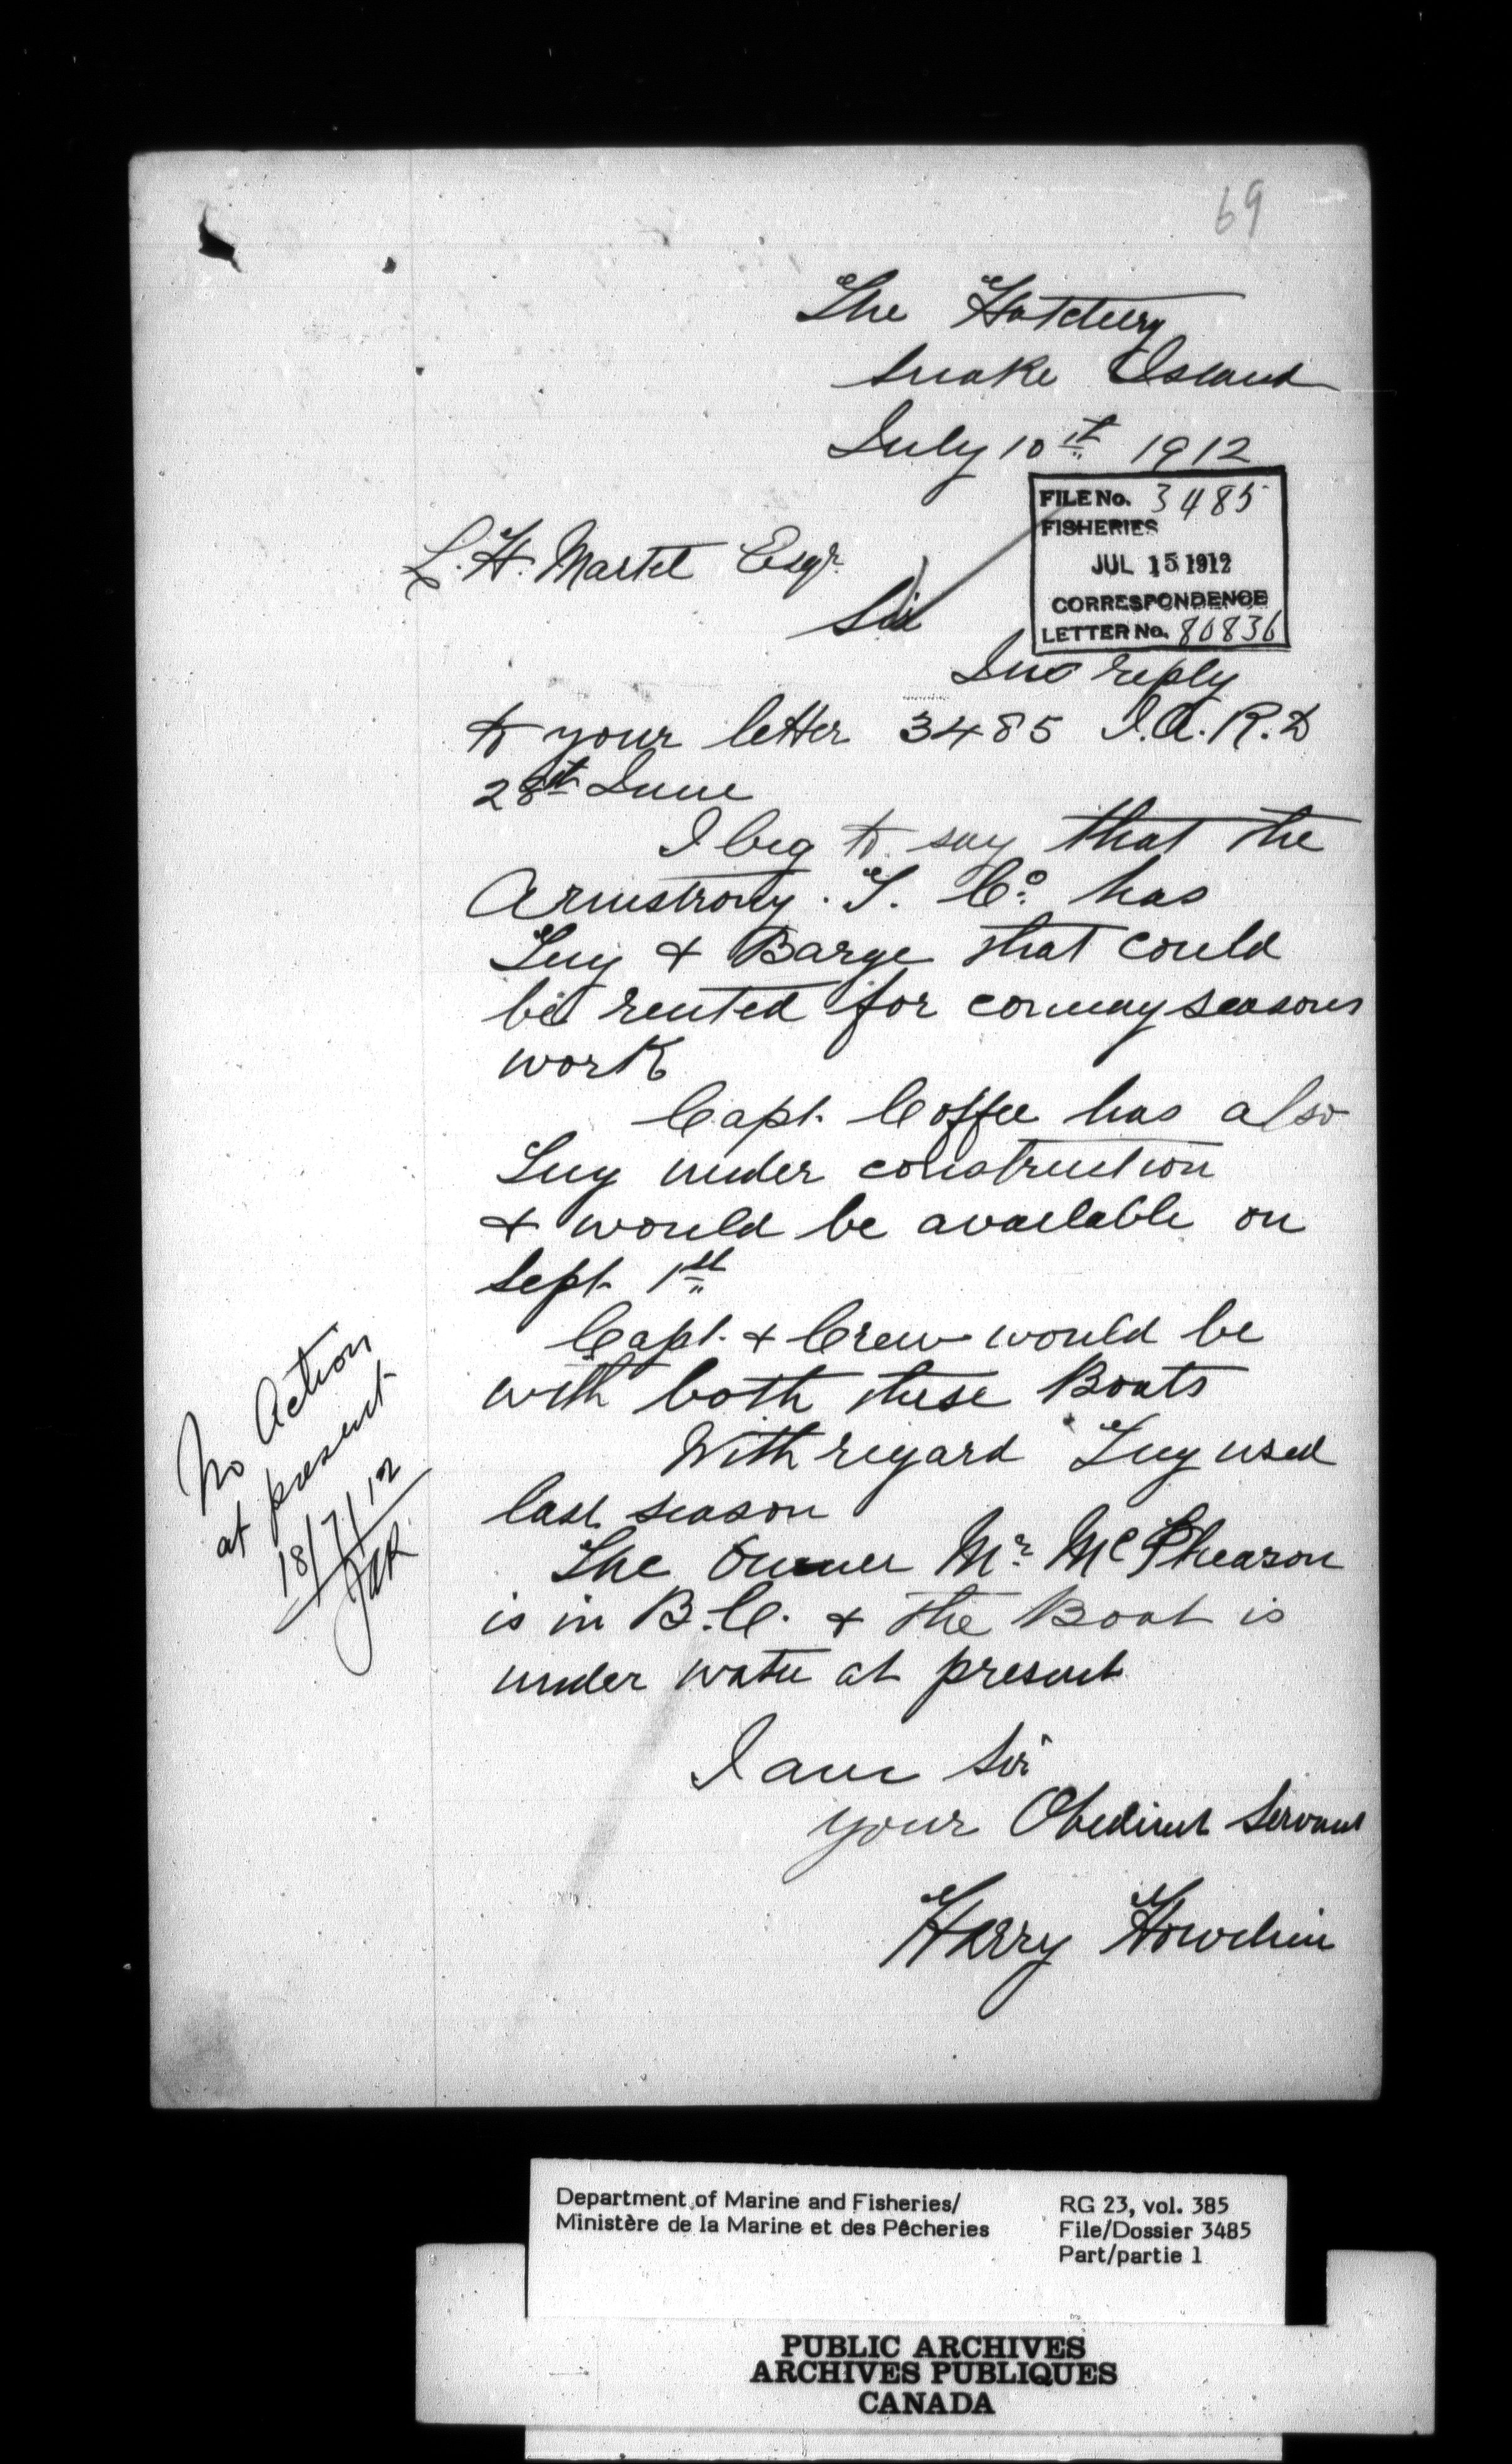 69
The Hatchery
Snake Island
July 10th 1912
FILE No. 3485
FISHERIES
JUL 15 1912
CORRESPONDENCE
LETTER No. 80836
L. H. Martel Esqr.
Sir
In reply
to your letter 3485 J.A.R.D
28th June
I beg to say that the
Armstrong. T. Co. has
Tug & Barge that could
be rented for coming seasons
work
Capt. Coffee has also
Tug under construction
& would be available on
Sept. 1st
Capt. & Crew would be
with both these Boats
With regard Tug used
last season
The owner Mr. McPhearson
is in B.C. & the Boat is
under water at present
I am Sir
your Obedient Servant
Harry Howchin
No Action
at present
18/7/12
JAR.
Department of Marine and Fisheries/
Ministère de la Marine et des Pêcheries
RG 23, vol. 385
File/Dossier 3485
Part/partie 1
PUBLIC ARCHIVES
ARCHIVES PUBLIQUES
CANADA